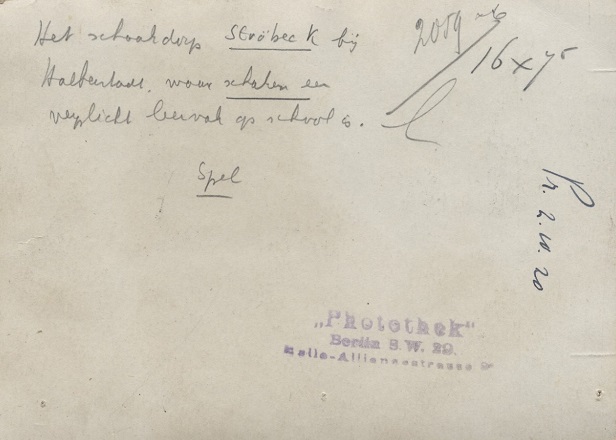 Het schaakdorp Ströbeck bij
Halberstadt, waar schaken een
verplicht leervak op school is.
Spel
2059
16 x 7⁵
Pr. 2.10.20
„Photothek“
Berlin S.W. 29.
Belle-Alliancestrasse